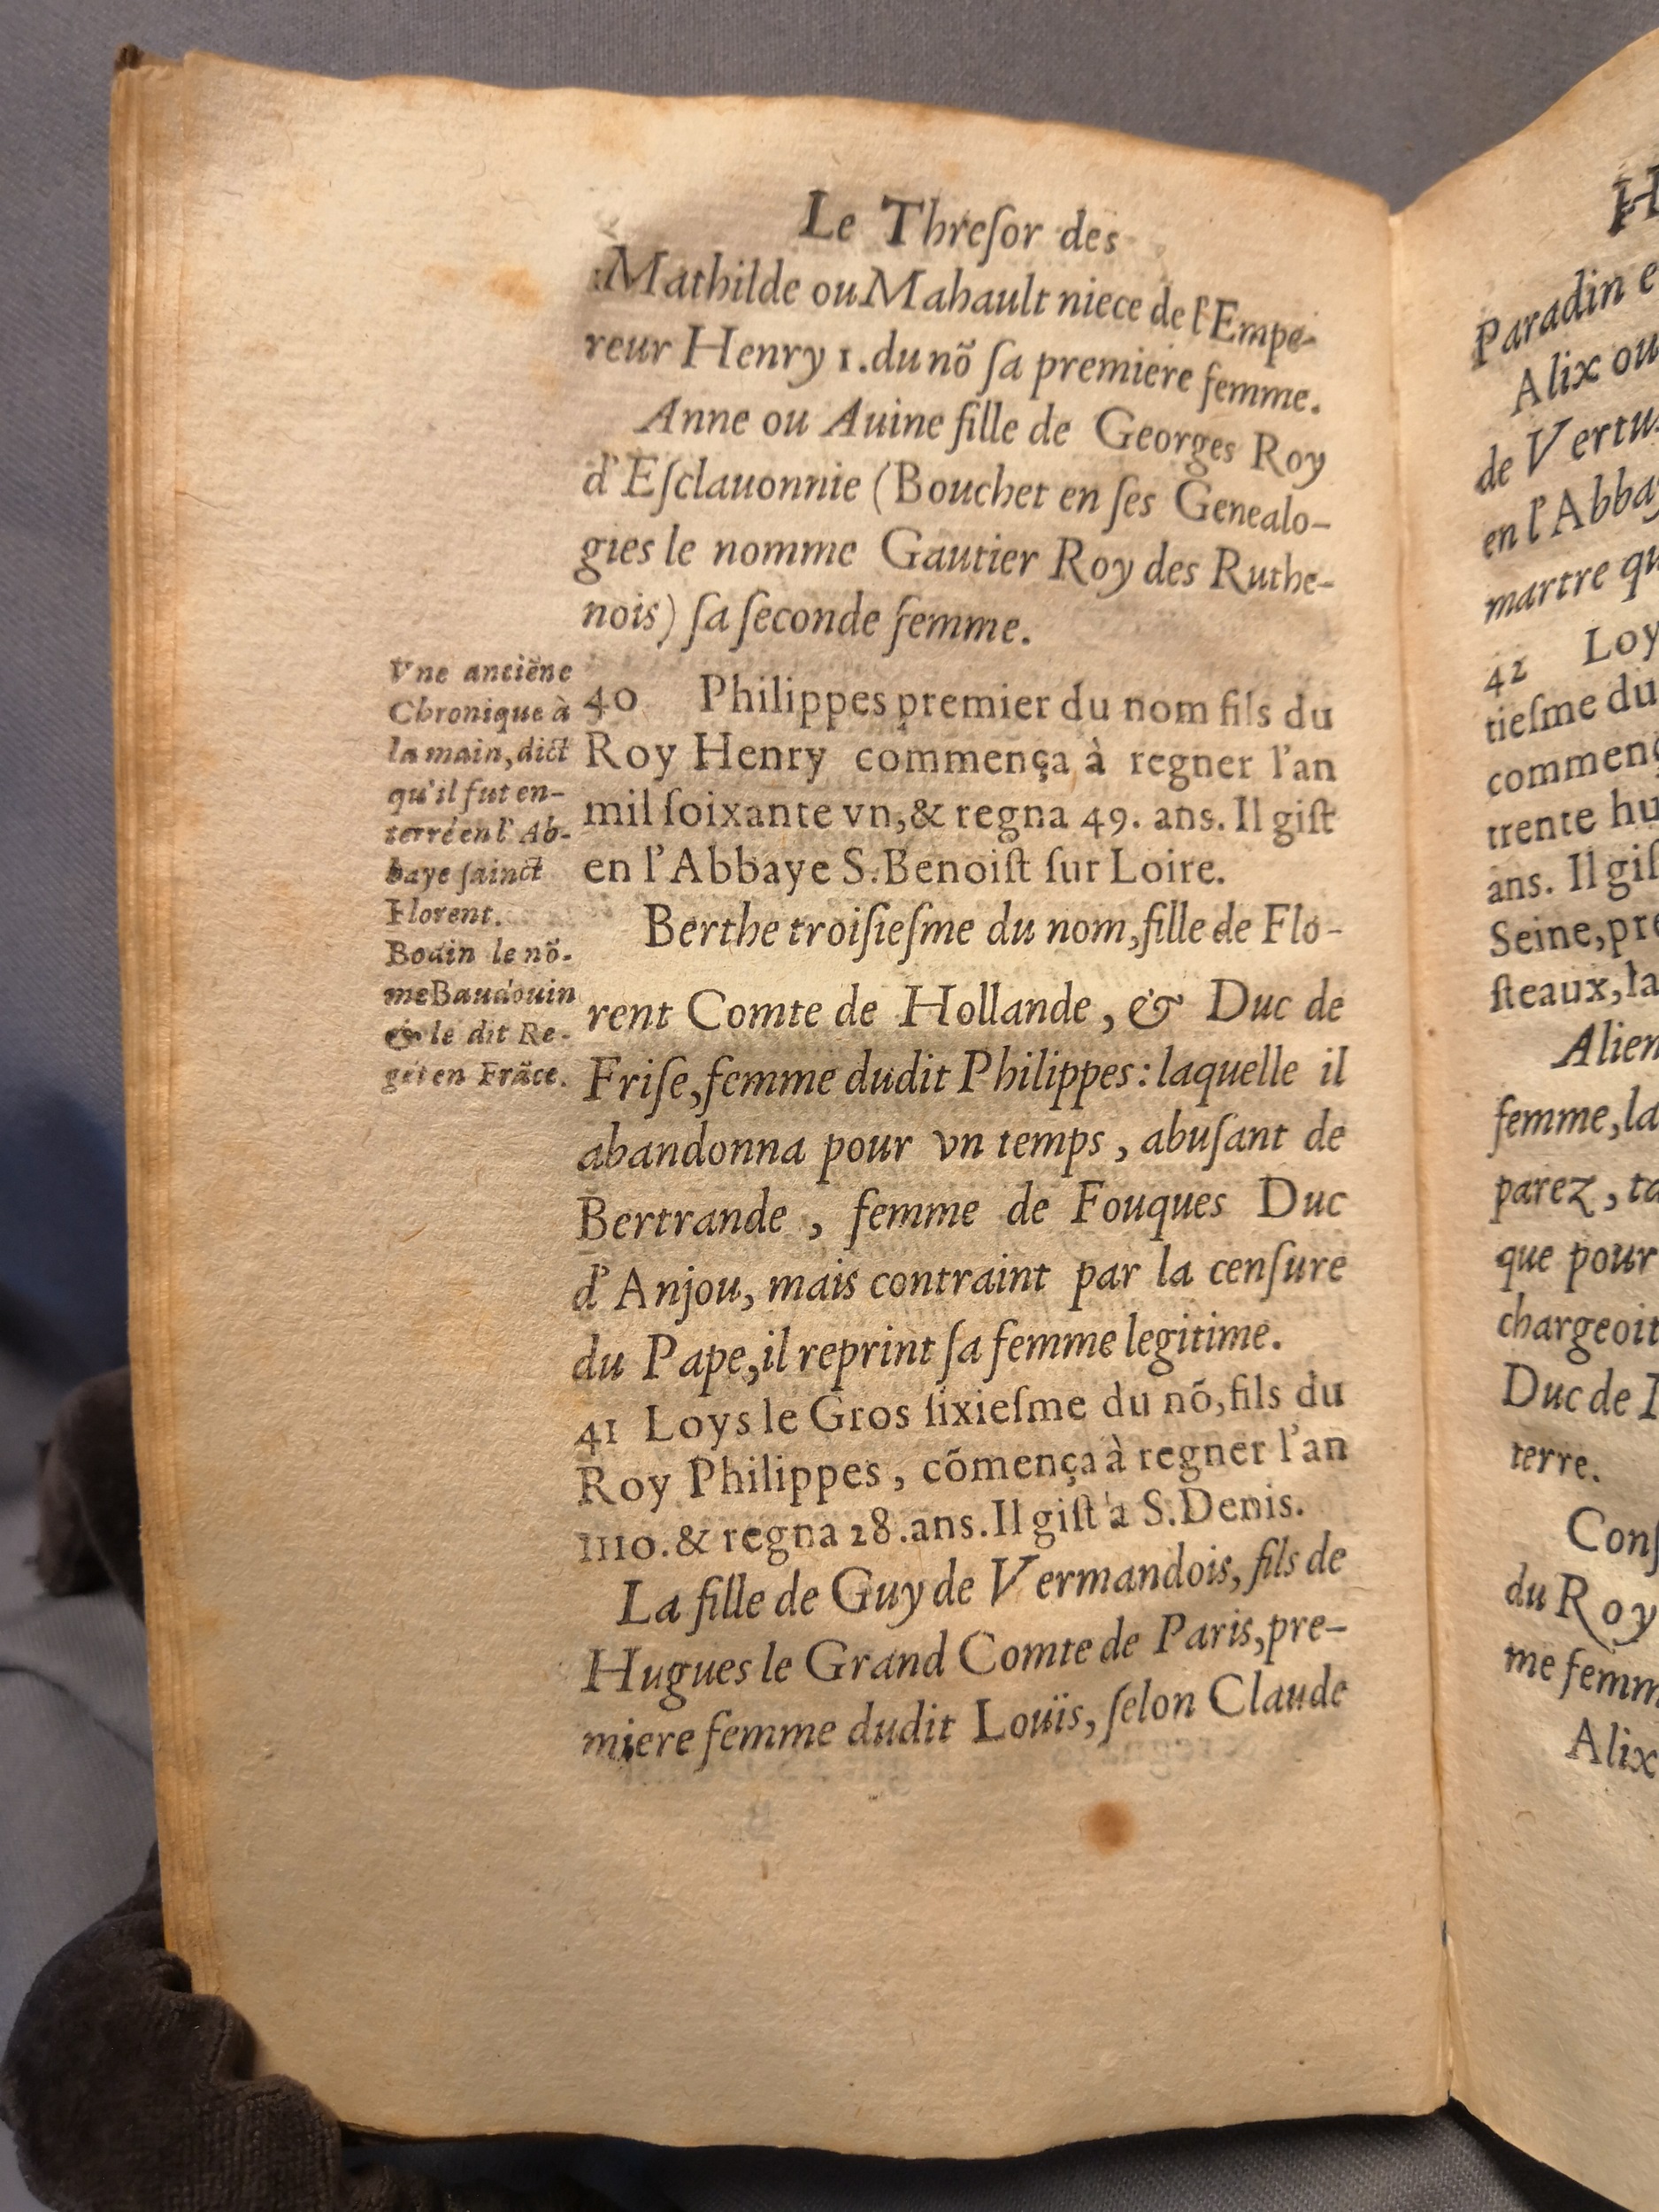 Le Threſor des
Mathilde ou Mahault niece de l'Empe-
reur Henry 1. du nõ ſa premiere femme.
Anne ou Auine fille de Georges Roy
d'Eſclauonnie (Bouchet en ſes Genealo-
gies le nomme Gautier Roy des Ruthe-
nois) ſa ſeconde femme.
40 Philippes premier du nom fils du
Roy Henry commença à regner l'an
mil ſoixante vn, & regna 49. ans. Il giſt
en l'Abbaye S. Benoiſt ſur Loire.
Berthe troiſieſme du nom, fille de Flo-
rent Comte de Hollande, & Duc de
Friſe, femme dudit Philippes: laquelle il
abandonna pour vn temps, abuſant de
Bertrande, femme de Fouques Duc
d'Anjou, mais contraint par la cenſure
du Pape, il reprint ſa femme legitime.
41 Loys le Gros ſixieſme du nõ, fils du
Roy Philippes, cõmença à regner l'an
1110. & regna 28. ans. Il giſt a S. Denis.
La fille de Guy de Vermandois, fils de
Hugues le Grand Comte de Paris, pre-
miere femme dudit Louïs, ſelon Claude
Vne anciẽne
Chronique à
la main, dict
qu'il fut en-
terré en l'Ab-
baye ſainct
Florent.
Bodin le nõ-
me Baudouin
& le dit Re-
gẽt en Frãce.
H
Paradin e
Alix ou
de Vertu
en l'Abba
martre qu
42 Loy
tieſme du
commenç
trente hu
ans. Il giſ
Seine, pre
ſteaux, la
Alien
femme, la
parez, ta
que pour
chargeoit
Duc de
terre.
Conſ
du Roy
me femm
Alix